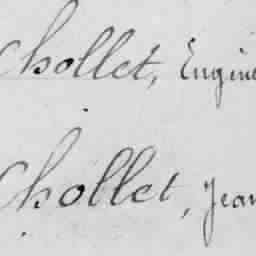 Chollet, Eugène
Chollet, Jean